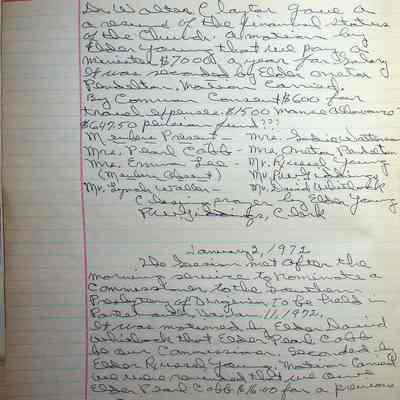 Dr. Walter Clayton gave a
a resumé of the financial status
of the Church. A motion by
Elder Young that we pay a
Minister $7000 a year for Salary
It was seconded by Elder
Pendelton. Motion Carried.
By Common Consent $600 for
travel expenses. $1500 Manse Allowance
$647.50 pension fund??
Members Present -
Mrs. Pearl Cobb - Mrs.
Mrs. Emma Lee - Mr. Russel Young
(Members Absent)
Mr. Lynch Waller - Mr. David Whitlock
Closing prayer by Elder Young
Clerk
January 2, 1972
The Session met after the
morning service to nominate a
Commissioner to the Southern
Presbytery of Virginia to be held in
11, 1972.
It was motioned by Elder David
Whitlock that Elder Pearl Cobb
be our Commissioner. Seconded by
Elder Russel Young. Motion Carried
we were reminded that we owe
Elder Pearl Cobb $16.00 for a previous